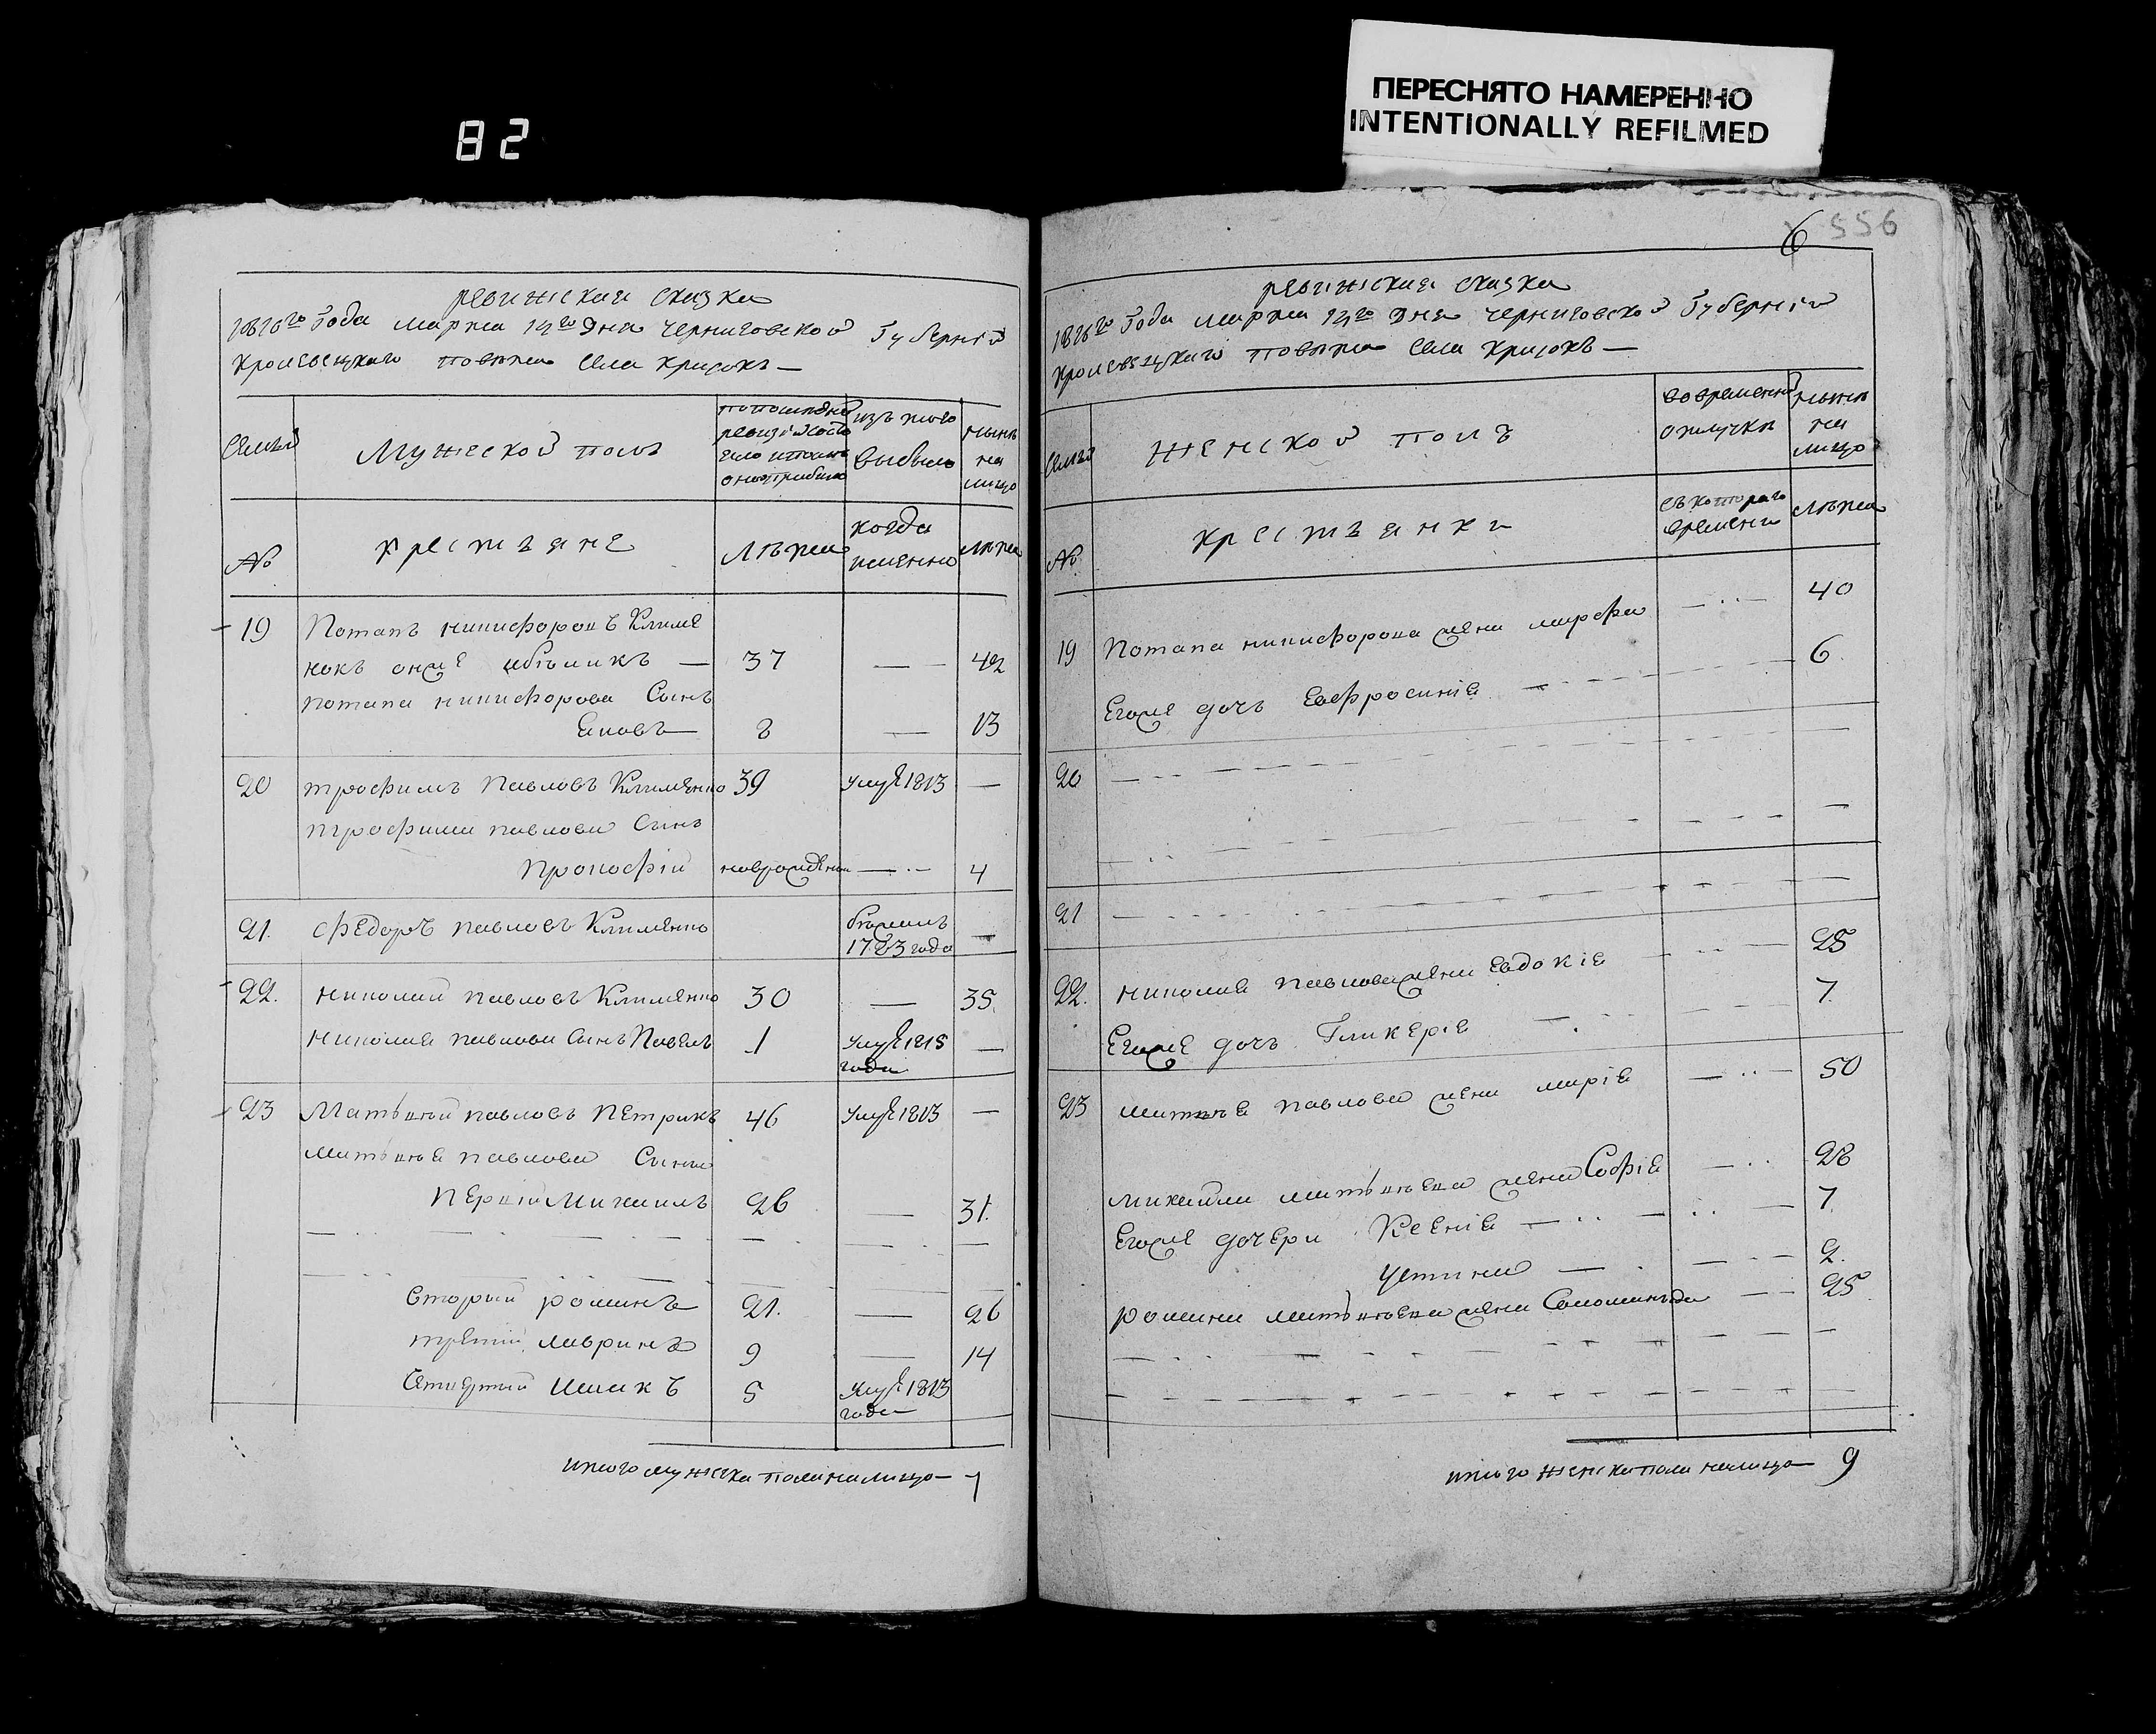 82
ПЕРЕСНЯТО НАМЕРЕННО
INTENTIONALLY REFILMED
ревижская сказка
1816го Года марта 14го Дня черниговской Губерніи
Кролевецкаго повѣта Села Крисокъ —
Семьи
Мужеской полъ
попоследней ревизіи состояло и после оной прибыло
изъ того выбыло
ныне на лицо
№
крестьяне
Лѣта
когда именно
лѣта
19 Потапъ никифоровъ Климе
нокъ онже — 37 — 42
потапа никифорова Сынъ
Яковъ — 8 — 13
20 трофимъ павловъКлименко 39 умре 1813 —
трофима павлова Сынъ
Прокофій новрожденъ — 4
21. Федоръ павловъ Клименко бежалъ 1783 года —
22. николай павловъ Клименко 30 — 35.
николая павлова Сынъ Павелъ 1 умре 1815 года —
23 Матвѣй павловъ Петрикъ 46 умре 1813 —
матвѣя павлова Сыны
первій Михаилъ 26 — 31.
вторый романъ 21. — 26
третій лавринъ 9 — 14
Четвертій Исакъ 5 умре 1813 года
итого мужеска пола налицо — 7
6 556
ревижская сказка
1816го Года марта 14го Дня черниговской Губерніи
кролевецкаго повѣта Села Крисокъ —
Семьи
женской полъ
во временной отлучкѣ
нынѣ на лицо
№
крестьянки
съ котораго времени
лѣта
19 Потапа никифорова жена марфа — 40
Егоже дочь Евфросинія — 6.
20 —
21 —
22. николая павлова жена Евдокія — 25
Егоже дочь Гликерія — 7.
23 матвѣя павлова жена марія — 50
михайла матвѣева жена Софія — 28
Егоже дочери Ксенія — 7
Устинія — 2.
романа матвѣева жена Соломанида — 25
итого женска пола налицо — 9